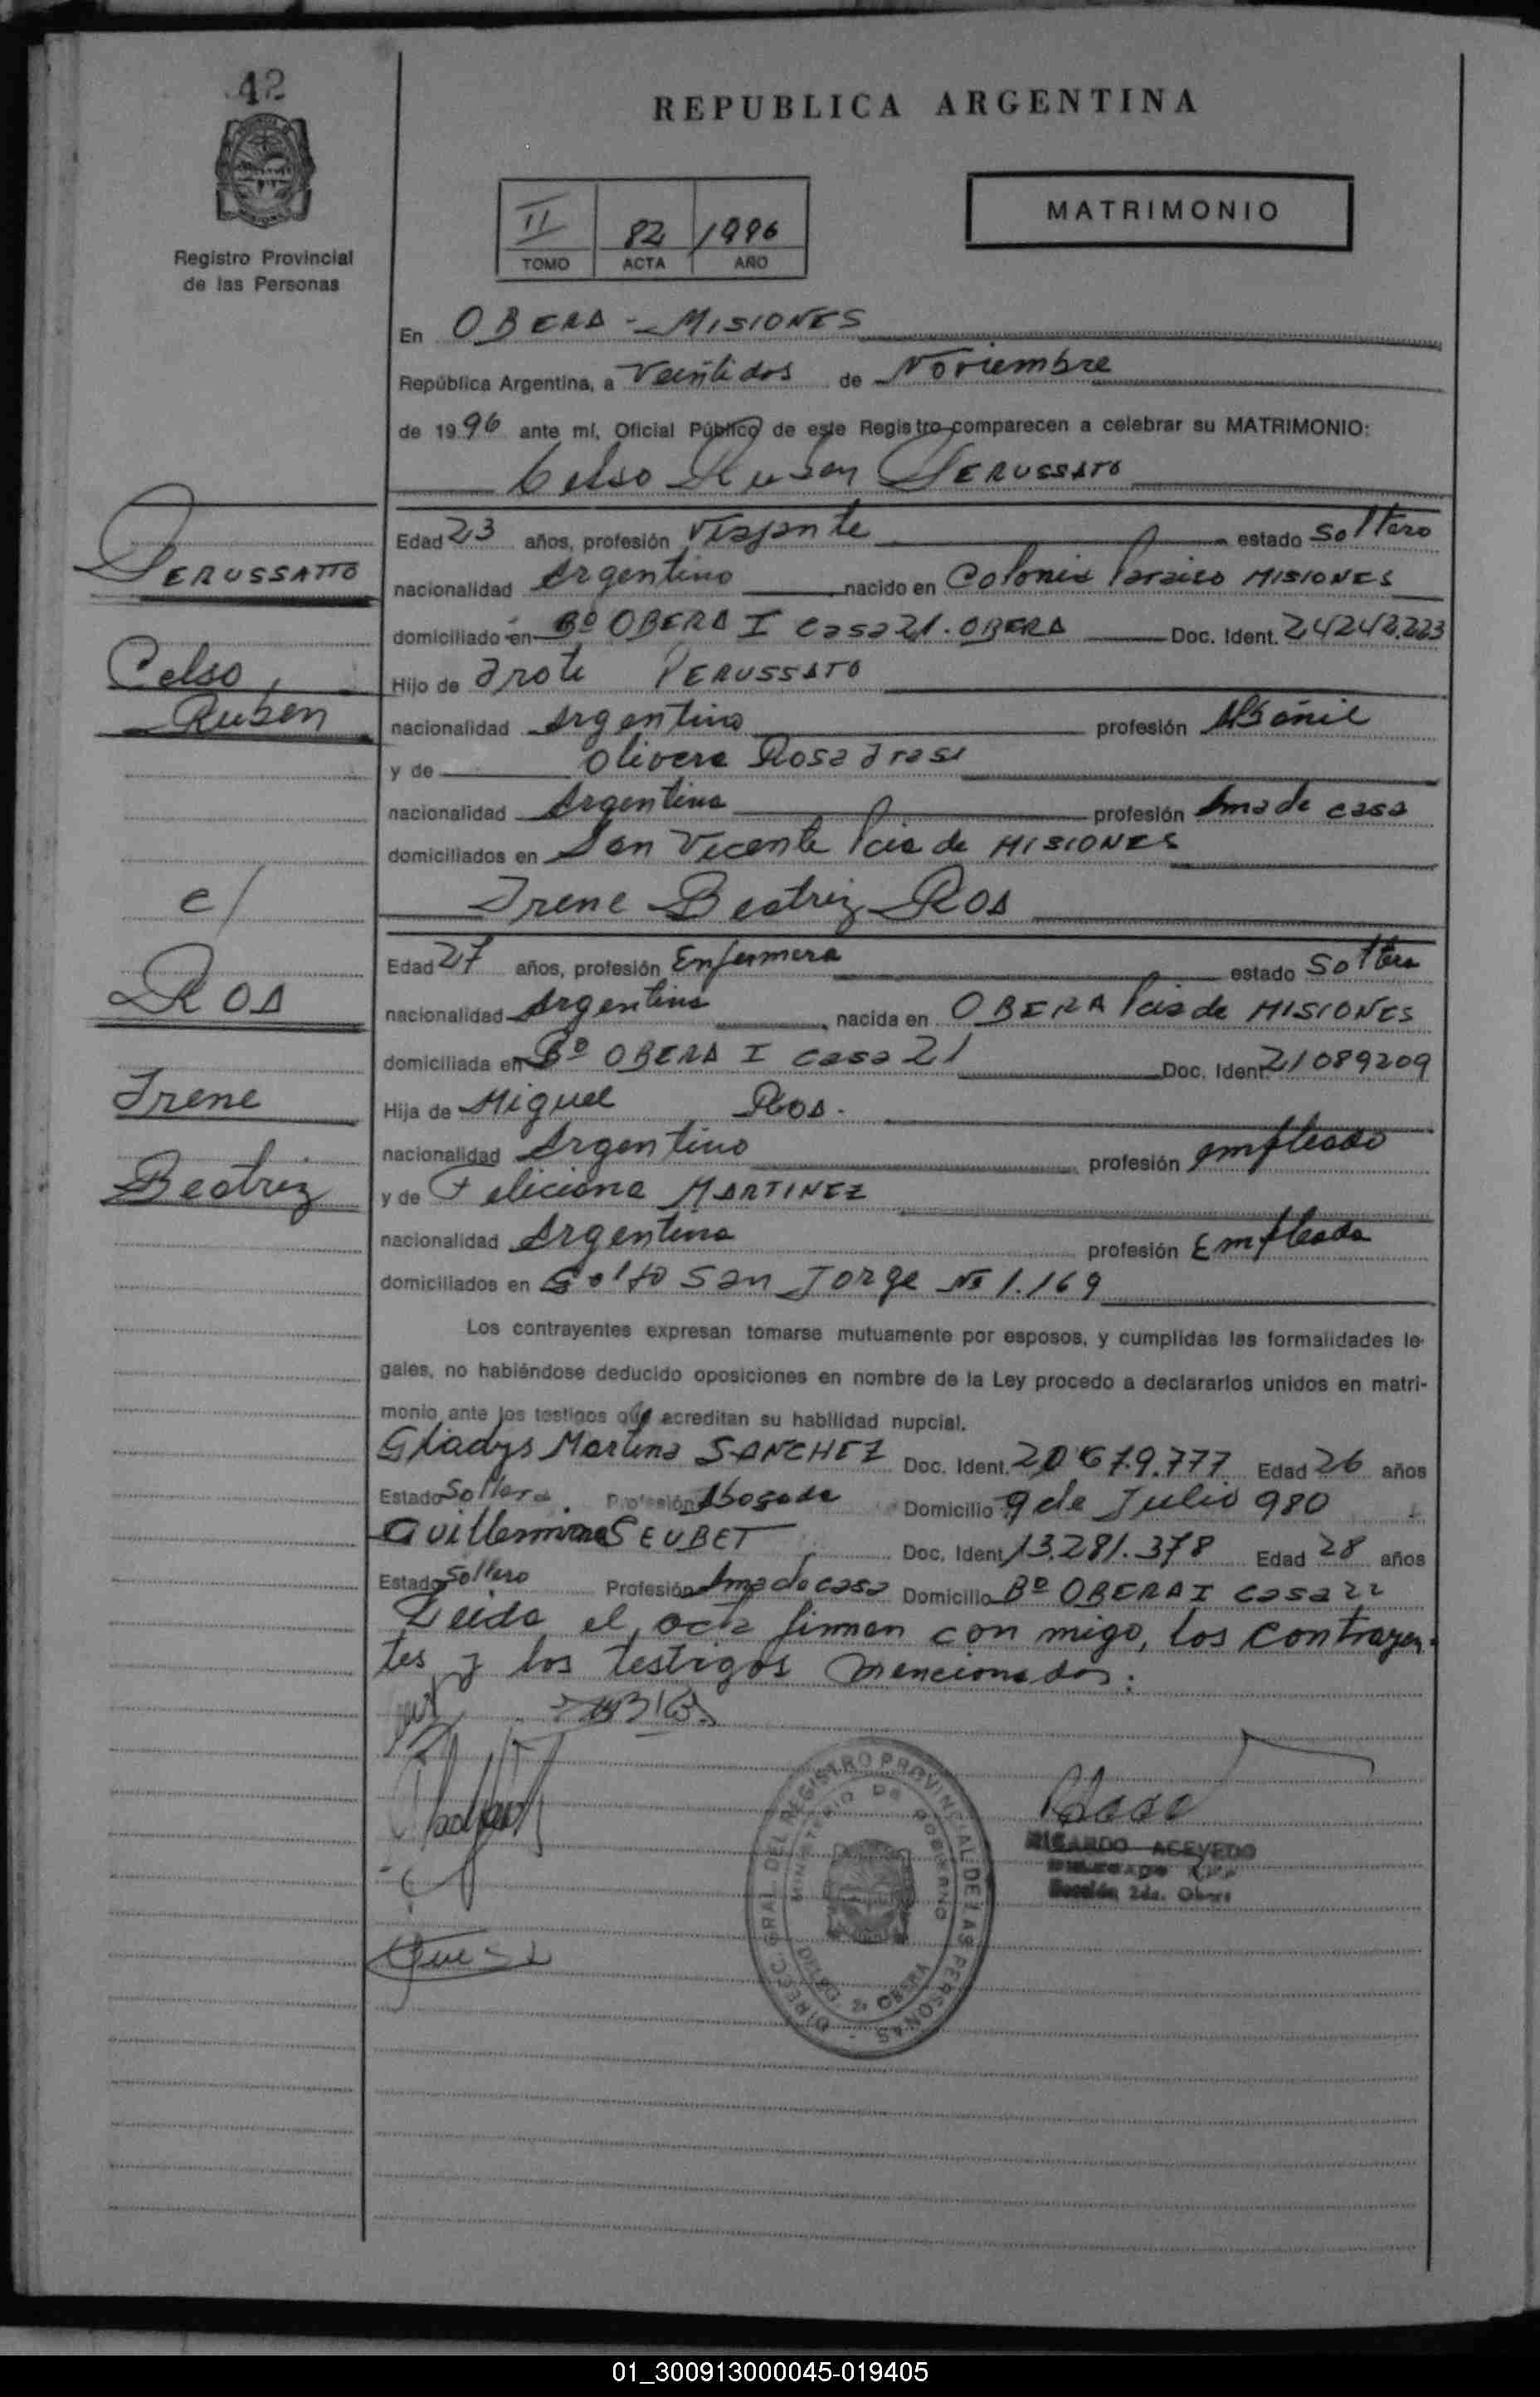 42
REPUBLICA ARGENTINA
Registro Provincial
de las Personas
II 82 1996
TOMO ACTA AÑO
MATRIMONIO
En OBERA - MISIONES
República Argentina, a Veintidos de Noviembre
de 1996 ante mí, Oficial Público de este Registro comparecen a celebrar su MATRIMONIO:
Celso Ruben PERUSSATO
PERUSSATTO
Celso
Ruben
Edad 23 años, profesión Viajante estado Soltero
nacionalidad Argentino nacido en Colonia Paraiso MISIONES
domiciliado en Bº OBERA I casa 21. OBERA Doc. Ident. 24242.223
Hijo de PERUSSATO
nacionalidad Argentino profesión Albañil
y de Olivera Rosa
nacionalidad Argentina profesión Ama de casa
domiciliados en San Vicente Pcia de MISIONES
c/
ROA
Irene
Beatriz
Irene Beatriz ROA
Edad 27 años, profesión Enfermera estado Soltera
nacionalidad Argentina nacida en OBERA Pcia de MISIONES
domiciliada en Bº OBERA I casa 21 Doc. Ident. 21089209
Hija de Miguel Roa.
nacionalidad Argentino profesión empleado
y de Feliciana MARTINEZ
nacionalidad Argentina profesión Empleada
domiciliados en Golfo San Jorge Nº 1.169
Los contrayentes expresan tomarse mutuamente por esposos, y cumplidas las formalidades le-
gales, no habiéndose deducido oposiciones en nombre de la Ley procedo a declararlos unidos en matri-
monio ante los testigos que acreditan su habilidad nupcial.
Gladys Martina SANCHEZ Doc. Ident. 20.679.777 Edad 26 años
Estado Soltera Profesión Abogada Domicilio 9 de Julio 980
Guillermina SEUBET Doc. Ident. 13.281.378 Edad 28 años
Estado Soltero Profesión Ama de casa Domicilio Bº OBERA I casa 22
Leida el acta firman con migo, los contrayen-
tes y los testigos mencionados.
DIREC. GRAL. DEL REGISTRO PROVINCIAL DE LAS PERSONAS
MINISTERIO DE GOBIERNO
OBERA
RICARDO ACEVEDO
Sección 2da. Obera
01_300913000045-019405